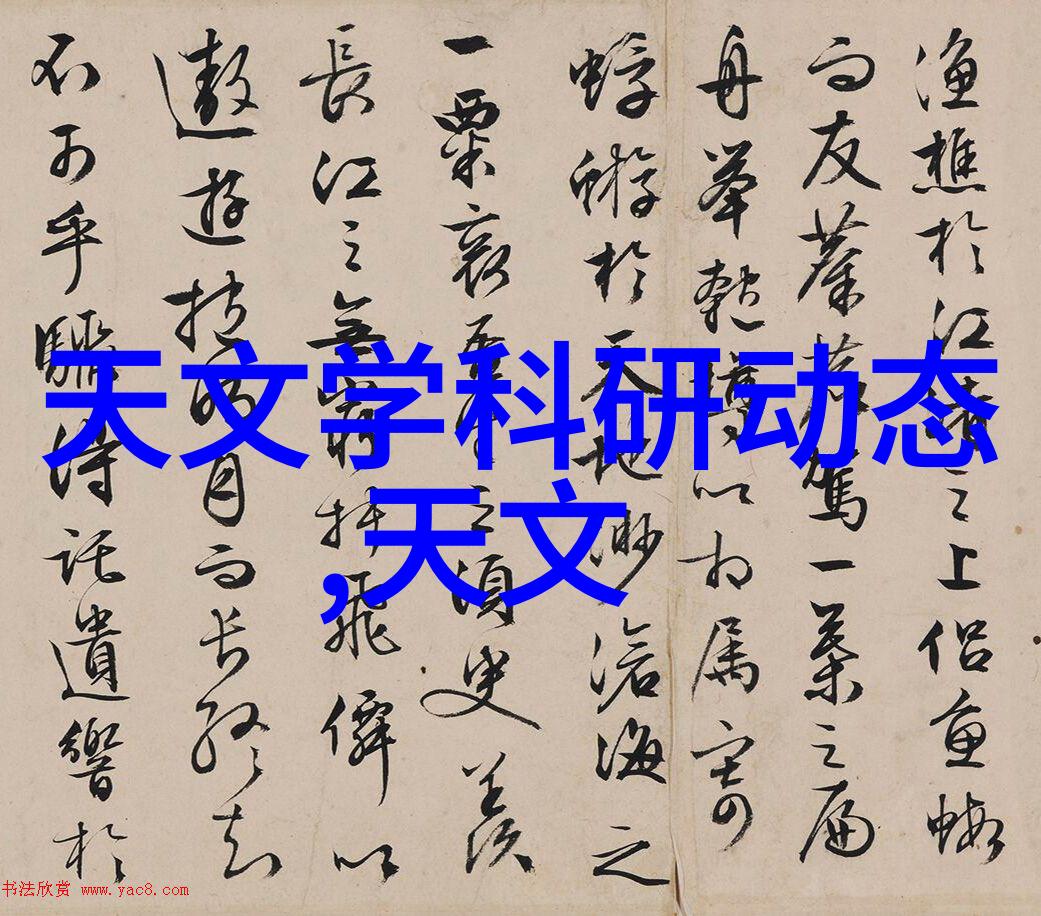 漁樵於江渚之上侣魚蝦
而友麋鹿駕一葉之扁
舟舉匏樽以相属寄
蜉蝣於天地渺滄海之
一粟哀吾生之須臾羨
長江之無窮挾飛僊以
遨遊抱明月而長終知
不可乎驟得託遺響於
天文学科研动态
,天文
书法欣赏 www.yac8.com